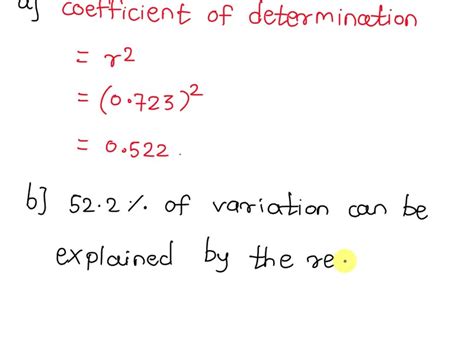 a] coefficient of determination
= r²
= (0.723)²
= 0.522.
b] 52.2 %. of variation can be
explained by the re